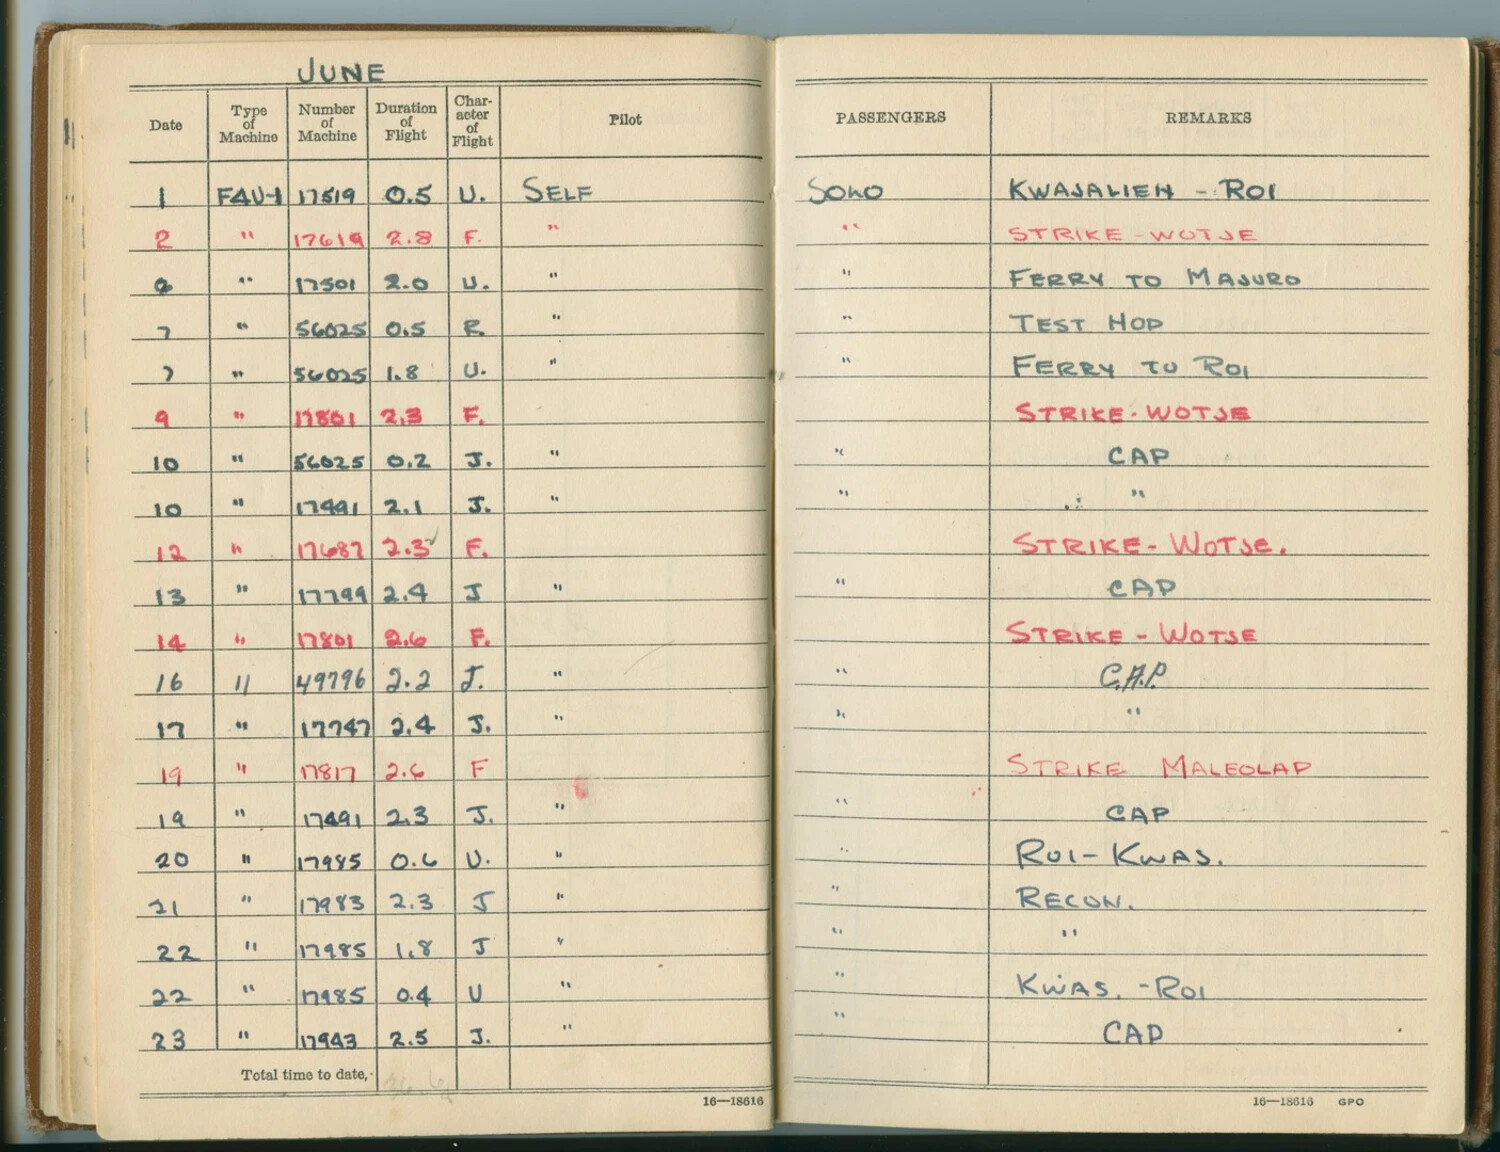 JUNE
Date Type of Machine Number of Machine Duration of Flight Char- acter of Flight Pilot PASSENGERS REMARKS
1 F4U-1 17519 0.5 U. SELF SOLO KWAJALIEN - ROI
2 " 17619 2.8 F. " " STRIKE - WOTJE
" 17501 2.0 U. " " FERRY TO MAJURO
7 " 56025 0.5 R " " TEST HOP
7 " 56025 1.8 U. " " FERRY TO ROI
9 " 17801 2.3 F. STRIKE - WOTJE
10 " 56025 0.2 J. " " CAP
10 " 17491 2.1 J. " " "
12 " 17687 2.3 F. STRIKE - WOTJE.
13 " 17799 2.4 J " " CAP
14 " 17801 2.6 F. STRIKE - WOTJE
16 " 49796 2.2 J. " " C.A.P.
17 " 17747 2.4 J. " " "
19 " 17817 2.6 F STRIKE MALEOLAP
19 " 17491 2.3 J. " " CAP
20 " 17985 0.6 U. " " ROI - KWAS.
21 " 17983 2.3 J " " RECON.
22 " 17985 1.8 J " " "
22 " 17985 0.4 U " " KWAS. - ROI
23 " 17943 2.5 J. " " CAP
Total time to date,
16—18616 16—18616 GPO